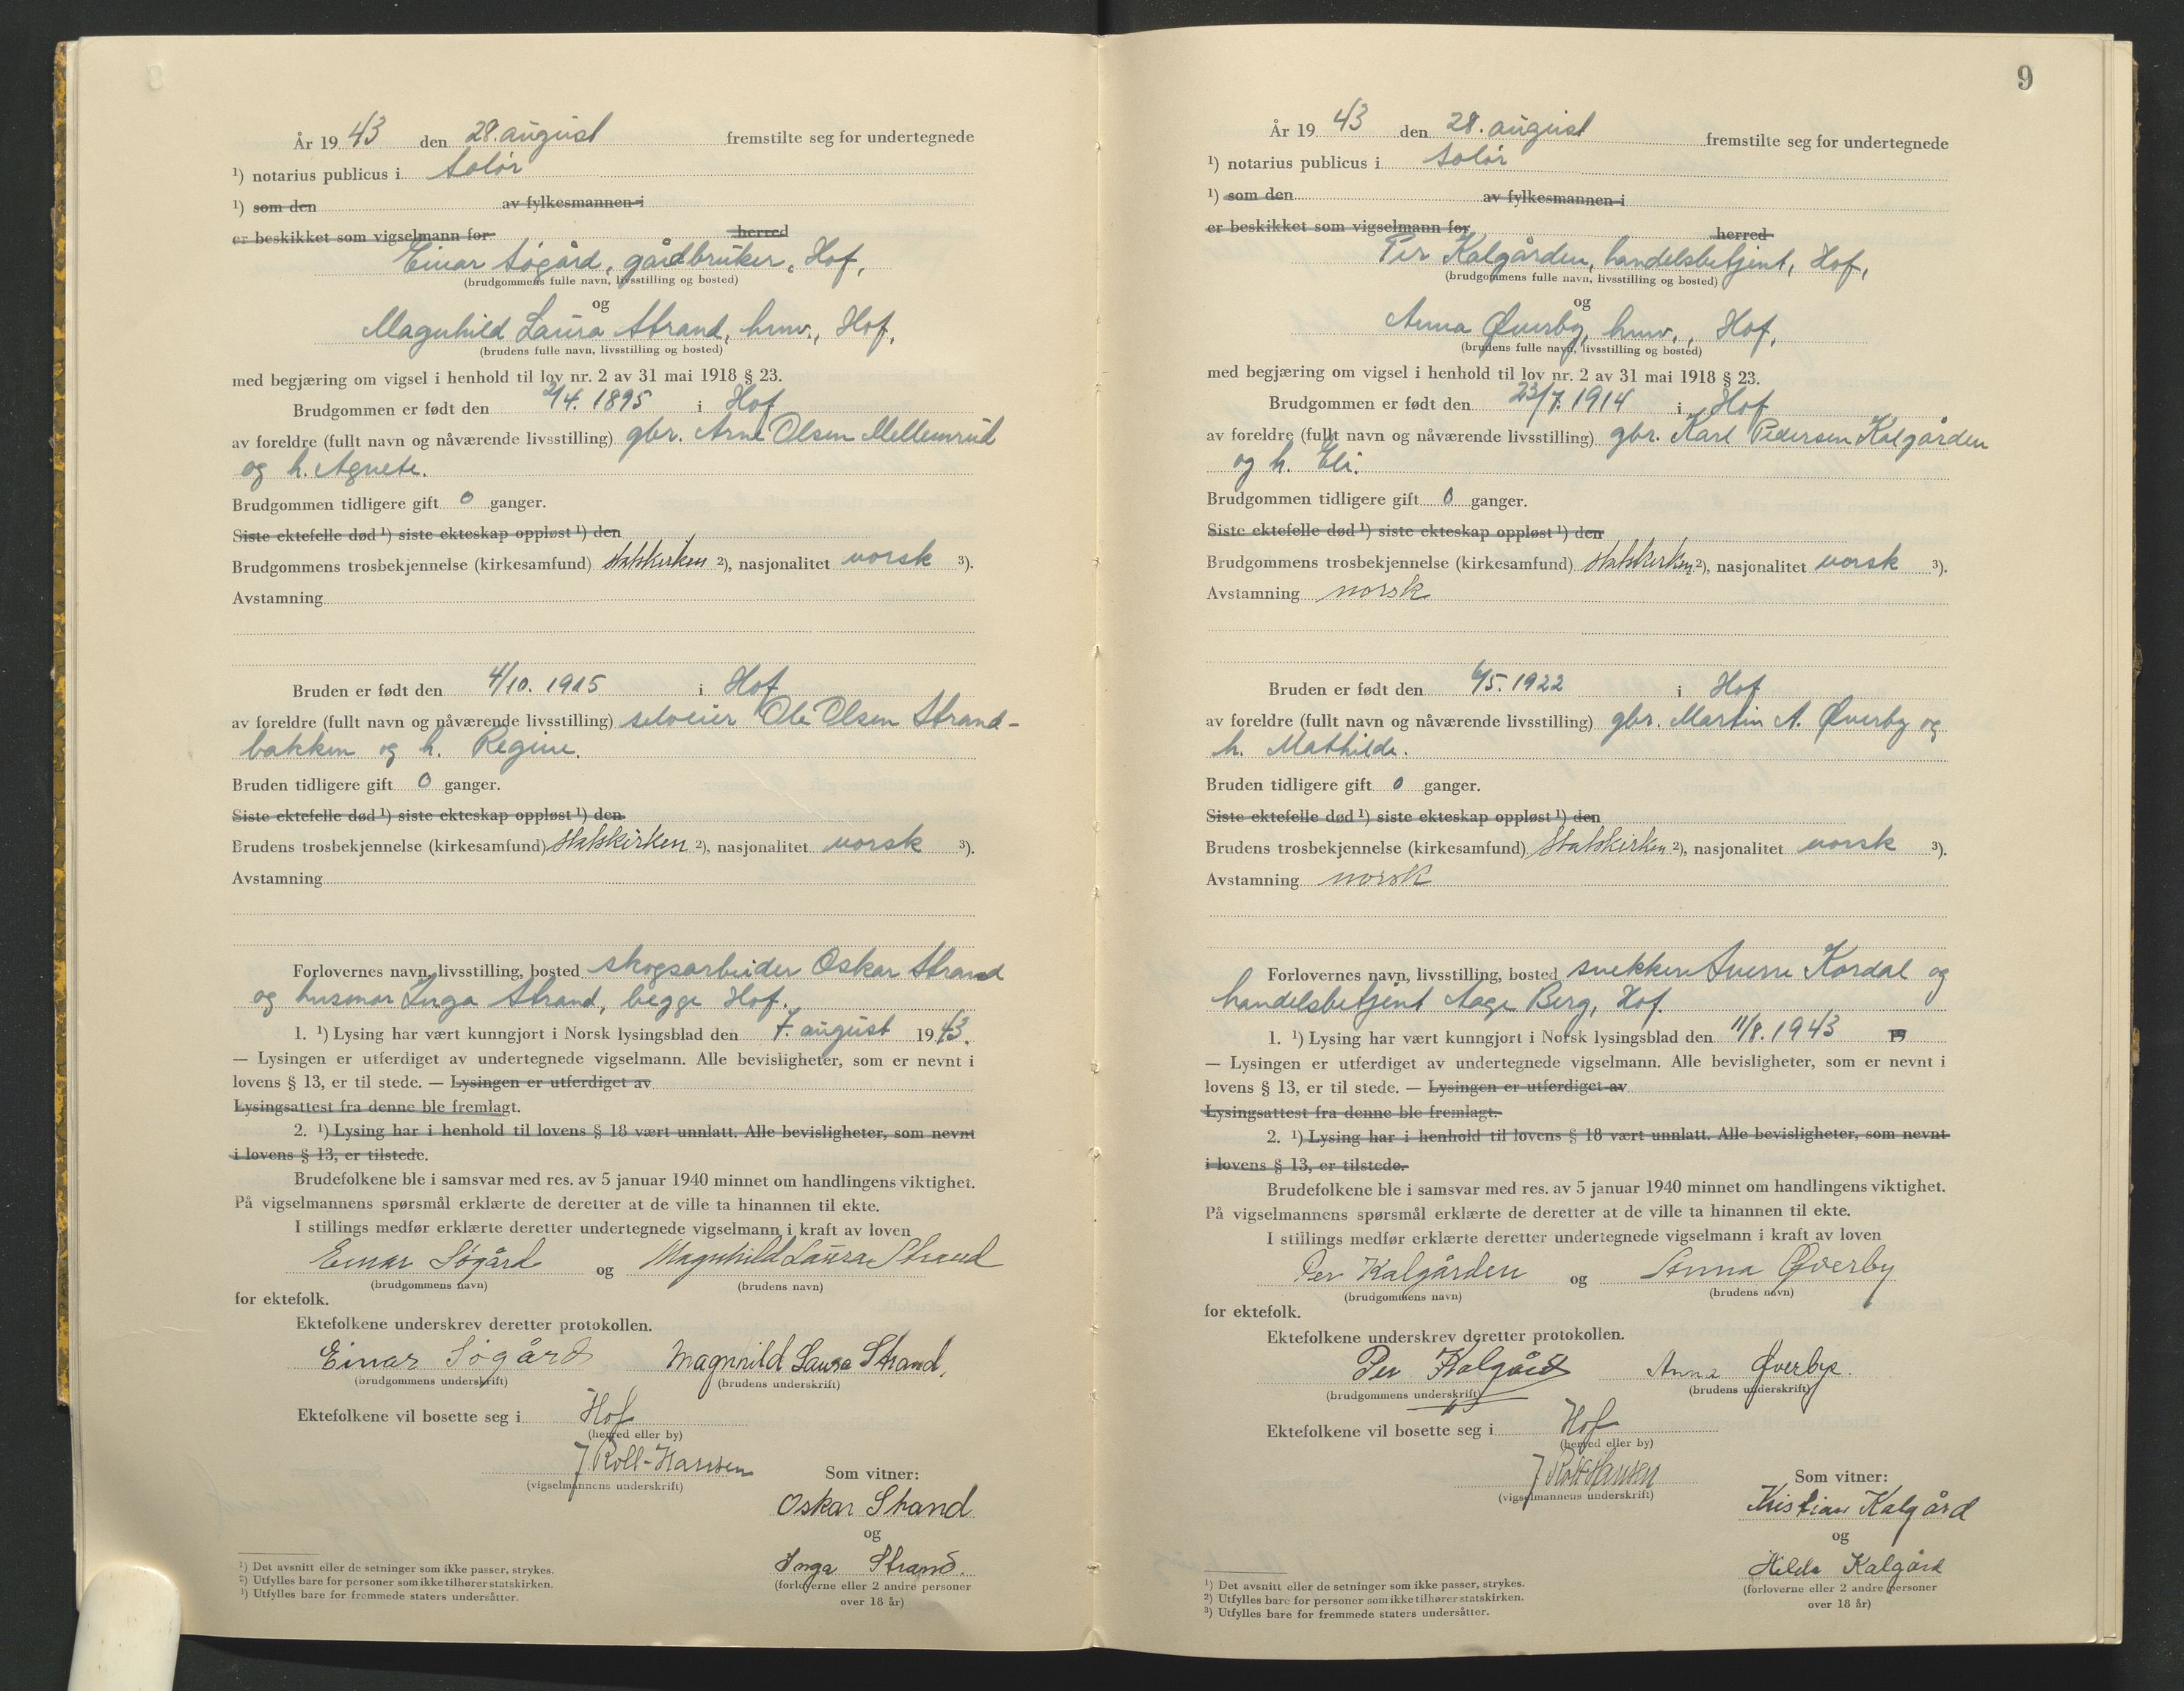 År 19 43 den 28. august fremstilte seg for undertegnede
¹) notarius publicus i Solør
¹) som den av fylkesmannen i
er beskikket som vigselmann for herred
Einar Søgård, gårdbruker, Hof,
(brudgommens fulle navn, livsstilling og bosted)
og
Magnhild Laura Strand, hmv., Hof,
(brudens fulle navn, livsstilling og bosted)
med begjæring om vigsel i henhold til lov nr. 2 av 31 mai 1918 § 23.
Brudgommen er født den 4. 1895 i Hof
av foreldre (fullt navn og nåværende livsstilling) gbr. Arne Olsen Mellemrud
og h. Agnete.
Brudgommen tidligere gift 0 ganger.
Siste ektefelle død ¹) siste ekteskap oppløst ¹) den
Brudgommens trosbekjennelse (kirkesamfund) statskirken ²), nasjonalitet norsk ³).
Avstamning
Bruden er født den 4/10. 1915 i Hof
av foreldre (fullt navn og nåværende livsstilling) selveier Ole Olsen Strand-
bakken og h. Regine.
Bruden tidligere gift 0 ganger.
Siste ektefelle død ¹) siste ekteskap oppløst ¹) den
Brudens trosbekjennelse (kirkesamfund) statskirken ²), nasjonalitet norsk ³).
Avstamning
Forlovernes navn, livsstilling, bosted skogsarbeider Oskar Strand
og husmor Inga Strand, begge Hof.
1. ¹) Lysing har vært kunngjort i Norsk lysingsblad den 7. august 19 43.
— Lysingen er utferdiget av undertegnede vigselmann. Alle bevisligheter, som er nevnt i
lovens § 13, er til stede. — Lysingen er utferdiget av
Lysingsattest fra denne ble fremlagt.
2. ¹) Lysing har i henhold til lovens § 18 vært unnlatt. Alle bevisligheter, som nevnt
i lovens § 13, er tilstede.
Brudefolkene ble i samsvar med res. av 5 januar 1940 minnet om handlingens viktighet.
På vigselmannens spørsmål erklærte de deretter at de ville ta hinannen til ekte.
I stillings medfør erklærte deretter undertegnede vigselmann i kraft av loven
Einar Søgård og Magnhild Laura Strand
(brudgommens navn) (brudens navn)
for ektefolk.
Ektefolkene underskrev deretter protokollen.
Einar Søgård Magnhild Laura Strand,
(brudgommens underskrift) (brudens underskrift)
Ektefolkene vil bosette seg i Hof
(herred eller by)
J. Roll-Hansen
(vigselmannens underskrift)
Som vitner:
Oskar Strand
og
Inga Strand.
(forloverne eller 2 andre personer
over 18 år)
¹) Det avsnitt eller de setninger som ikke passer, strykes.
²) Utfylles bare for personer som ikke tilhører statskirken.
³) Utfylles bare for fremmede staters undersåtter.
9
År 19 43 den 28. august fremstilte seg for undertegnede
¹) notarius publicus i Solør
¹) som den av fylkesmannen i
er beskikket som vigselmann for herred
Per Kalgården, handelsbetjent, Hof,
(brudgommens fulle navn, livsstilling og bosted)
og
Anna Øverby, hmv., Hof,
(brudens fulle navn, livsstilling og bosted)
med begjæring om vigsel i henhold til lov nr. 2 av 31 mai 1918 § 23.
Brudgommen er født den 23/7. 1914 i Hof
av foreldre (fullt navn og nåværende livsstilling) gbr. Karl Pedersen Kalgården
og h. Eli.
Brudgommen tidligere gift 0 ganger.
Siste ektefelle død ¹) siste ekteskap oppløst ¹) den
Brudgommens trosbekjennelse (kirkesamfund) statskirken ²), nasjonalitet norsk ³).
Avstamning norsk
Bruden er født den 6/5. 1922 i Hof
av foreldre (fullt navn og nåværende livsstilling) gbr. Martin A. Øverby og
h. Mathilde.
Bruden tidligere gift 0 ganger.
Siste ektefelle død ¹) siste ekteskap oppløst ¹) den
Brudens trosbekjennelse (kirkesamfund) statskirken ²), nasjonalitet norsk ³).
Avstamning norsk
Forlovernes navn, livsstilling, bosted snekker Sverre Kordal og
handelsbetjent Aage Berg, Hof.
1. ¹) Lysing har vært kunngjort i Norsk lysingsblad den 11/8. 1943 19
— Lysingen er utferdiget av undertegnede vigselmann. Alle bevisligheter, som er nevnt i
lovens § 13, er til stede. — Lysingen er utferdiget av
Lysingsattest fra denne ble fremlagt.
2. ¹) Lysing har i henhold til lovens § 18 vært unnlatt. Alle bevisligheter, som nevnt
i lovens § 13, er tilstede.
Brudefolkene ble i samsvar med res. av 5 januar 1940 minnet om handlingens viktighet.
På vigselmannens spørsmål erklærte de deretter at de ville ta hinannen til ekte.
I stillings medfør erklærte deretter undertegnede vigselmann i kraft av loven
Per Kalgården og Anna Øverby
(brudgommens navn) (brudens navn)
for ektefolk.
Ektefolkene underskrev deretter protokollen.
Per Kalgård Anna Øverby.
(brudgommens underskrift) (brudens underskrift)
Ektefolkene vil bosette seg i Hof
(herred eller by)
J. Roll-Hansen
(vigselmannens underskrift)
Som vitner:
Kristian Kalgård
og
Hilda Kalgård
(forloverne eller 2 andre personer
over 18 år)
¹) Det avsnitt eller de setninger som ikke passer, strykes.
²) Utfylles bare for personer som ikke tilhører statskirken.
³) Utfylles bare for fremmede staters undersåtter.